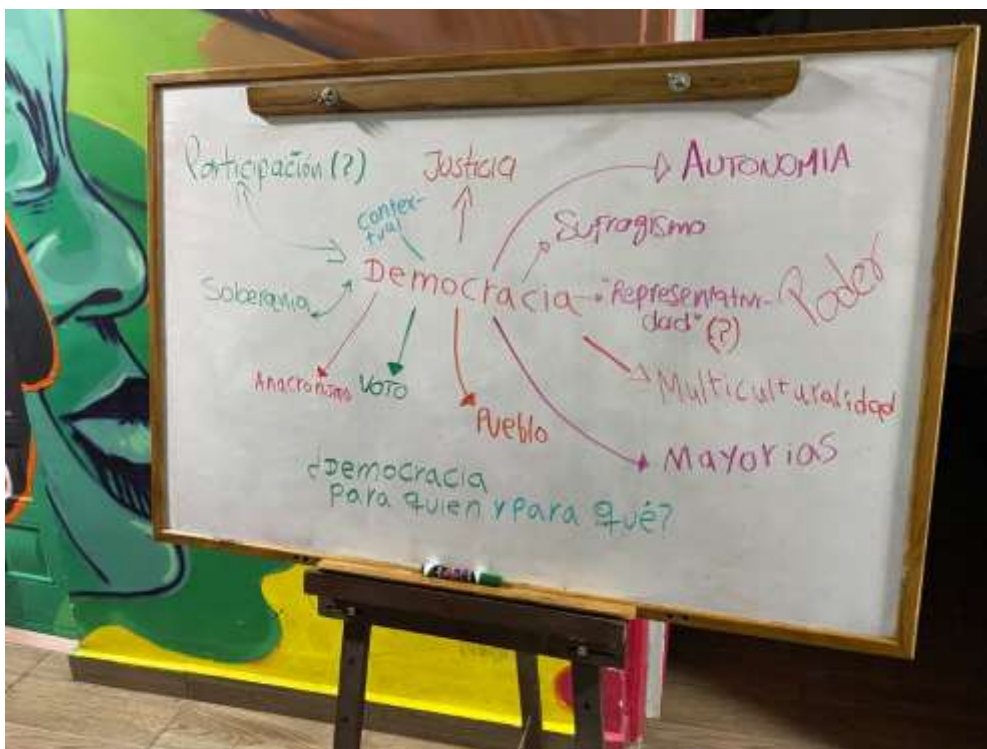 Participación (?)
Justicia
AUTONOMIA
contex-
tual
Sufragismo
Democracia
Soberania
"Representativi-
dad" (?)
Poder
Anacronismo
VOTO
Pueblo
Multiculturalidad
Mayorias
¿Democracia
para quien y para qué?